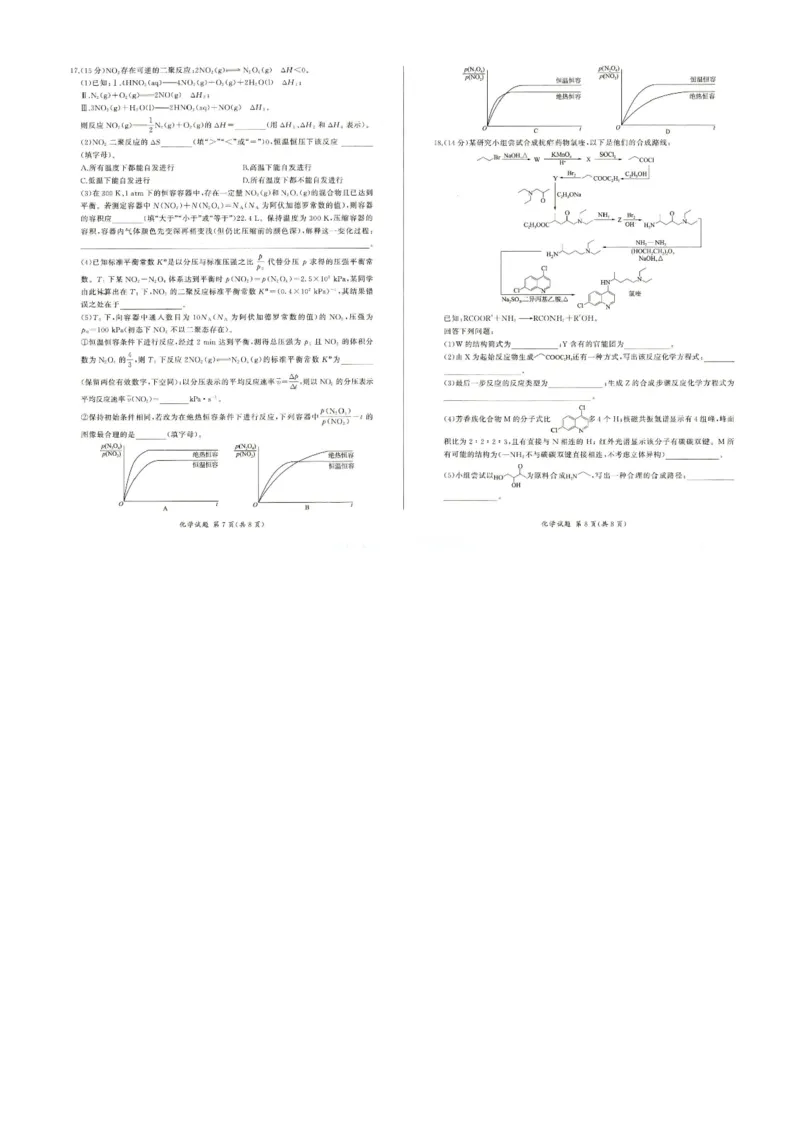 17.(15分)NO₂存在可逆的二聚反应:2NO₂(g)⇌N₂O₄(g) ΔH<0。
(1)已知:Ⅰ.4HNO₃(aq)═4NO₂(g)+O₂(g)+2H₂O(l) ΔH₁;
Ⅱ.N₂(g)+O₂(g)═2NO(g) ΔH₂;
Ⅲ.3NO₂(g)+H₂O(l)═2HNO₃(aq)+NO(g) ΔH₃。
则反应NO₂(g)═1/2N₂(g)+O₂(g)的ΔH=______(用ΔH₁、ΔH₂和ΔH₃表示)。
(2)NO₂二聚反应的ΔS______(填“>”“<”或“=”)0,恒温恒压下该反应______
(填字母)。
A.所有温度下都能自发进行 B.高温下能自发进行
C.低温下能自发进行 D.所有温度下都不能自发进行
(3)在300 K、1 atm下的恒容容器中,存在一定量NO₂(g)和N₂O₄(g)的混合物且已达到
平衡。若测定容器中N(NO₂)+N(N₂O₄)=N_A(N_A为阿伏加德罗常数的值),则容器
的容积应______(填“大于”“小于”或“等于”)22.4 L。保持温度为300 K,压缩容器的
容积,容器内气体颜色先变深再稍变浅(但仍比压缩前的颜色深),解释这一变化过程:
______。
(4)已知标准平衡常数K^θ是以分压与标准压强之比p/p₀代替分压p求得的压强平衡常
数。T₁下某NO₂-N₂O₄体系达到平衡时p(NO₂)=p(N₂O₄)=2.5×10² kPa,某同学
由此计算出在T₁下,NO₂的二聚反应标准平衡常数K^θ=(0.4×10² kPa)⁻¹,其结果错
误之处在于______。
(5)T₁下,向容器中通入数目为10N_A(N_A为阿伏加德罗常数的值)的NO₂,压强为
p₀=100 kPa(初态下NO₂不以二聚态存在)。
①恒温恒容条件下进行反应,经过2 min达到平衡,测得总压强为p₁且NO₂的体积分
数为N₂O₄的4/3,则T₁下反应2NO₂(g)⇌N₂O₄(g)的标准平衡常数K^θ为______
(保留两位有效数字,下空同);以分压表示的平均反应速率v=Δp/Δt,则以NO₂的分压表示
平均反应速率v(NO₂)=______kPa·s⁻¹。
②保持初始条件相同,若改为在绝热恒容条件下进行反应,下列容器中p(N₂O₄)/p(NO₂)-t的
图像最合理的是______(填字母)。
p(N₂O₄)/p(NO₂) 绝热恒容 恒温恒容 O t A
p(N₂O₄)/p(NO₂) 绝热恒容 恒温恒容 O t B
化学试题 第7页(共8页)
p(N₂O₄)/p(NO₂) 恒温恒容 绝热恒容 O t C
p(N₂O₄)/p(NO₂) 恒温恒容 绝热恒容 O t D
18.(14分)某研究小组尝试合成抗疟药物氯喹,以下是他们的合成路线:
Br NaOH,△ W KMnO₄ H⁺ X SOCl₂ COCl
Y Br₂ COOC₂H₅ C₂H₅OH
N O C₂H₅ONa
C₂H₅OOC O N NH₃ Z Br₂ OH⁻ H₂N O N
H₂N N NH₂—NH₂ (HOCH₂CH₂)₂O, NaOH,△
Cl Cl N Na₂SO₃,二异丙基乙胺,△ HN N Cl N 氯喹
已知:RCOOR'+NH₃→RCONH₂+R'OH。
回答下列问题:
(1)W的结构简式为______;Y含有的官能团为______。
(2)由X为起始反应物生成COOC₂H₅还有一种方式,写出该反应化学方程式:______
______。
(3)最后一步反应的反应类型为______;生成Z的合成步骤反应化学方程式为
______。
(4)芳香族化合物M的分子式比 Cl Cl N 多4个H;核磁共振氢谱显示有4组峰,峰面
积比为2:2:2:3,且有直接与N相连的H;红外光谱显示该分子有碳碳双键。M所
有可能的结构为(—NH₂不与碳碳双键直接相连,不考虑立体异构)______。
(5)小组尝试以 HO O OH 为原料合成 H₂N ,写出一种合理的合成路径:______
______。
化学试题 第8页(共8页)